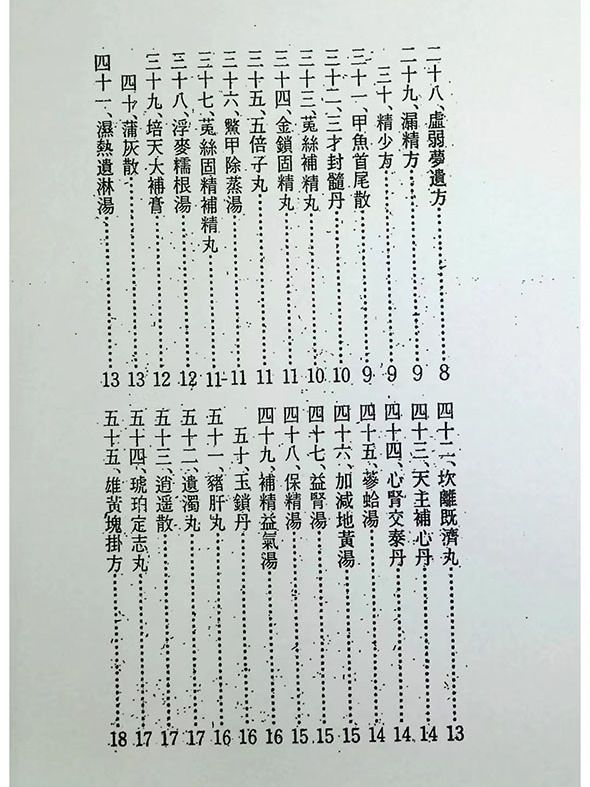 二十八、虛弱夢遺方……8
二十九、漏精方……9
三十、精少方……9
三十一、甲魚首尾散……9
三十二、三才封髓丹……10
三十三、菟絲補精丸……10
三十四、金鎖固精丸……11
三十五、五倍子丸……11
三十六、鱉甲除蒸湯……11
三十七、菟絲固精補精丸……11
三十八、浮麥糯根湯……12
三十九、培天大補膏……12
四十、蒲灰散……13
四十一、濕熱遺淋湯……13
四十二、坎離既濟丸……13
四十三、天主補心丹……14
四十四、心腎交泰丹……14
四十五、蔘蛤湯……14
四十六、加減地黃湯……15
四十七、益腎湯……15
四十八、保精湯……15
四十九、補精益氣湯……16
五十、玉鎖丹……16
五十一、豬肝丸……16
五十二、遺濁丸……17
五十三、逍遥散……17
五十四、琥珀定志丸……17
五十五、雄黃塊掛方……18